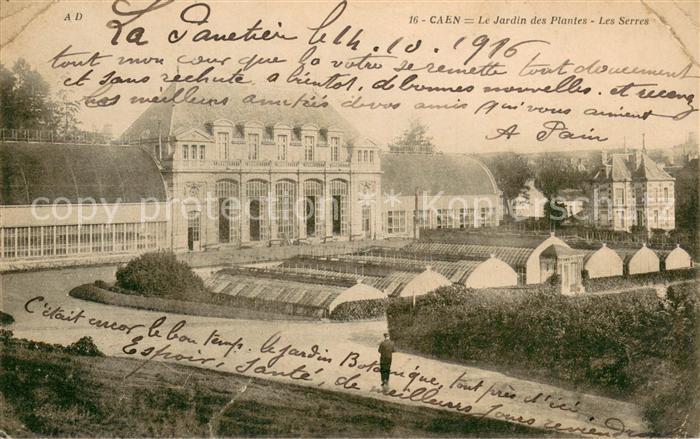 A D
16 - CAEN = Le Jardin des Plantes - Les Serres
La le 14. 10. 1916
tout mon cœur que la votre se remette tout doucement
et sans rechute. a bientôt, de bonnes nouvelles. et recevez
les meilleurs amitiés de vos amis qui vous aiment
A Pain
copy protected
C'était encor le bon temp. le jardin Botanique, tout près d'ici
Espoir, Santé, de meilleurs jours